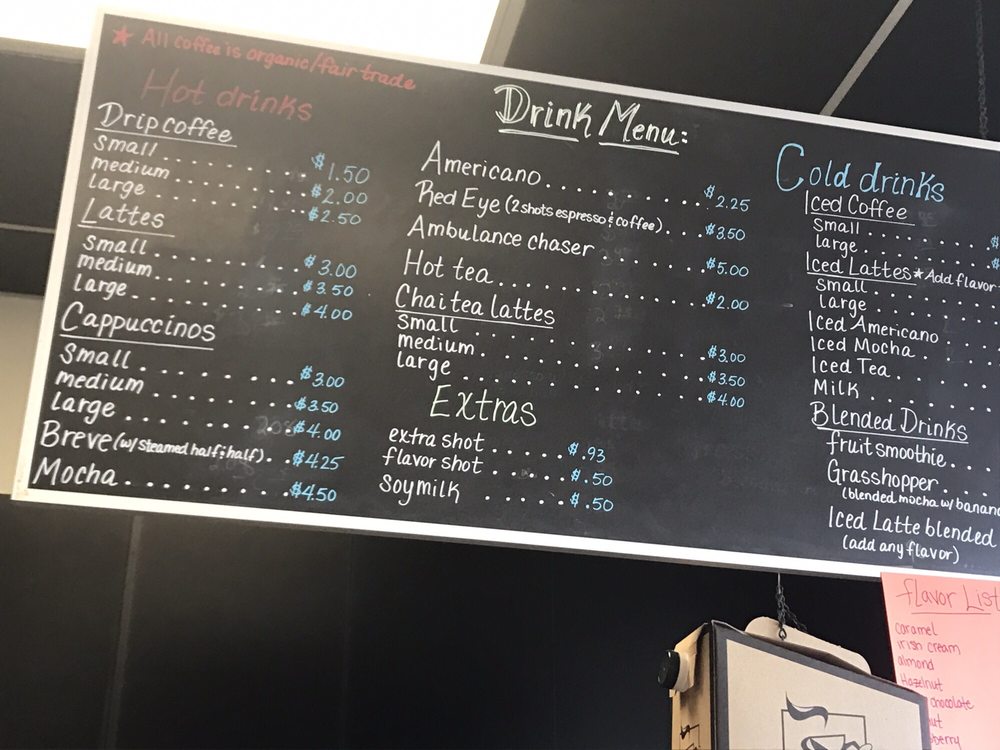 ★ All coffee is organic/fair trade
Hot drinks
Drip coffee
small $1.50
medium $2.00
large $2.50
Lattes
small $3.00
medium $3.50
large $4.00
Cappuccinos
small $3.00
medium $3.50
large $4.00
Breve (w/ steamed half & half) $4.25
Mocha $4.50
Drink Menu:
Americano $2.25
Red Eye (2 shots espresso & coffee) $3.50
Ambulance chaser $5.00
Hot tea $2.00
Chai tea lattes
small $3.00
medium $3.50
large $4.00
Extras
extra shot $.93
flavor shot $.50
Soymilk $.50
Cold drinks
Iced Coffee
Small $
large $
Iced Lattes ★ Add flavor
Small
large
Iced Americano
Iced Mocha
Iced Tea
Milk
Blended Drinks
fruit smoothie
Grasshopper
(blended mocha w/ banana
Iced Latte blended
(add any flavor)
flavor List
caramel
irish cream
almond
Hazelnut
chocolate